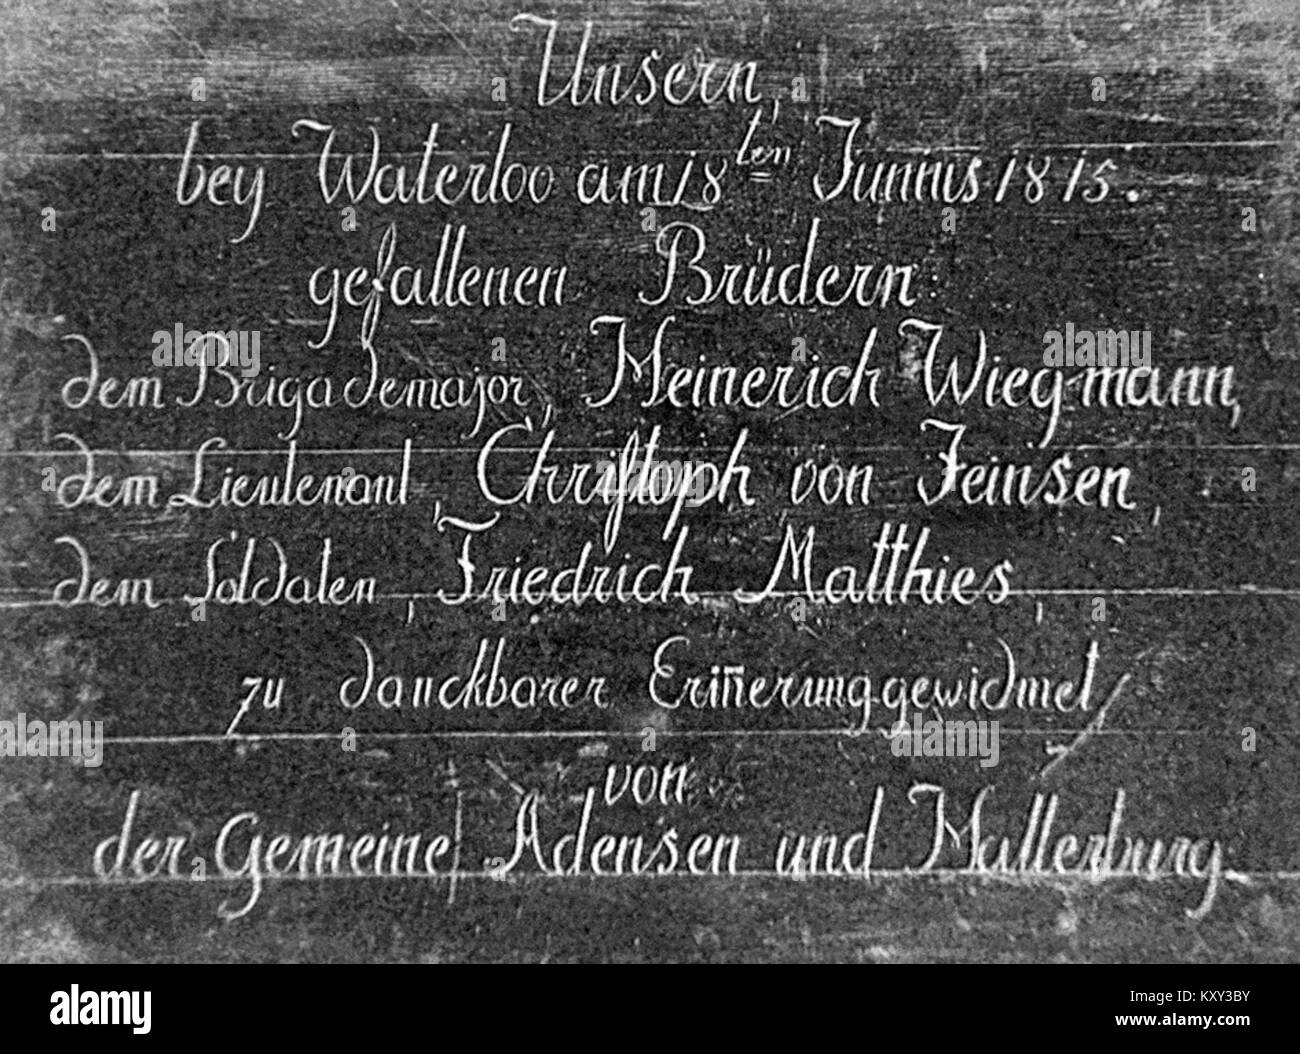 Unsern,
bey Waterloo am 18ten Junius 1815.
gefallenen Brüdern:
dem Brigademajor, Heinerich Wiegmann,
dem Lieutenant, Chriſtoph von Jeinsen,
dem Soldaten, Friedrich Matthies,
zu danckbarer Erin̄erung gewidmet/
von
der Gemeine Adensen und Hallerburg.
alamy
Image ID: KXY3BY
www.alamy.com